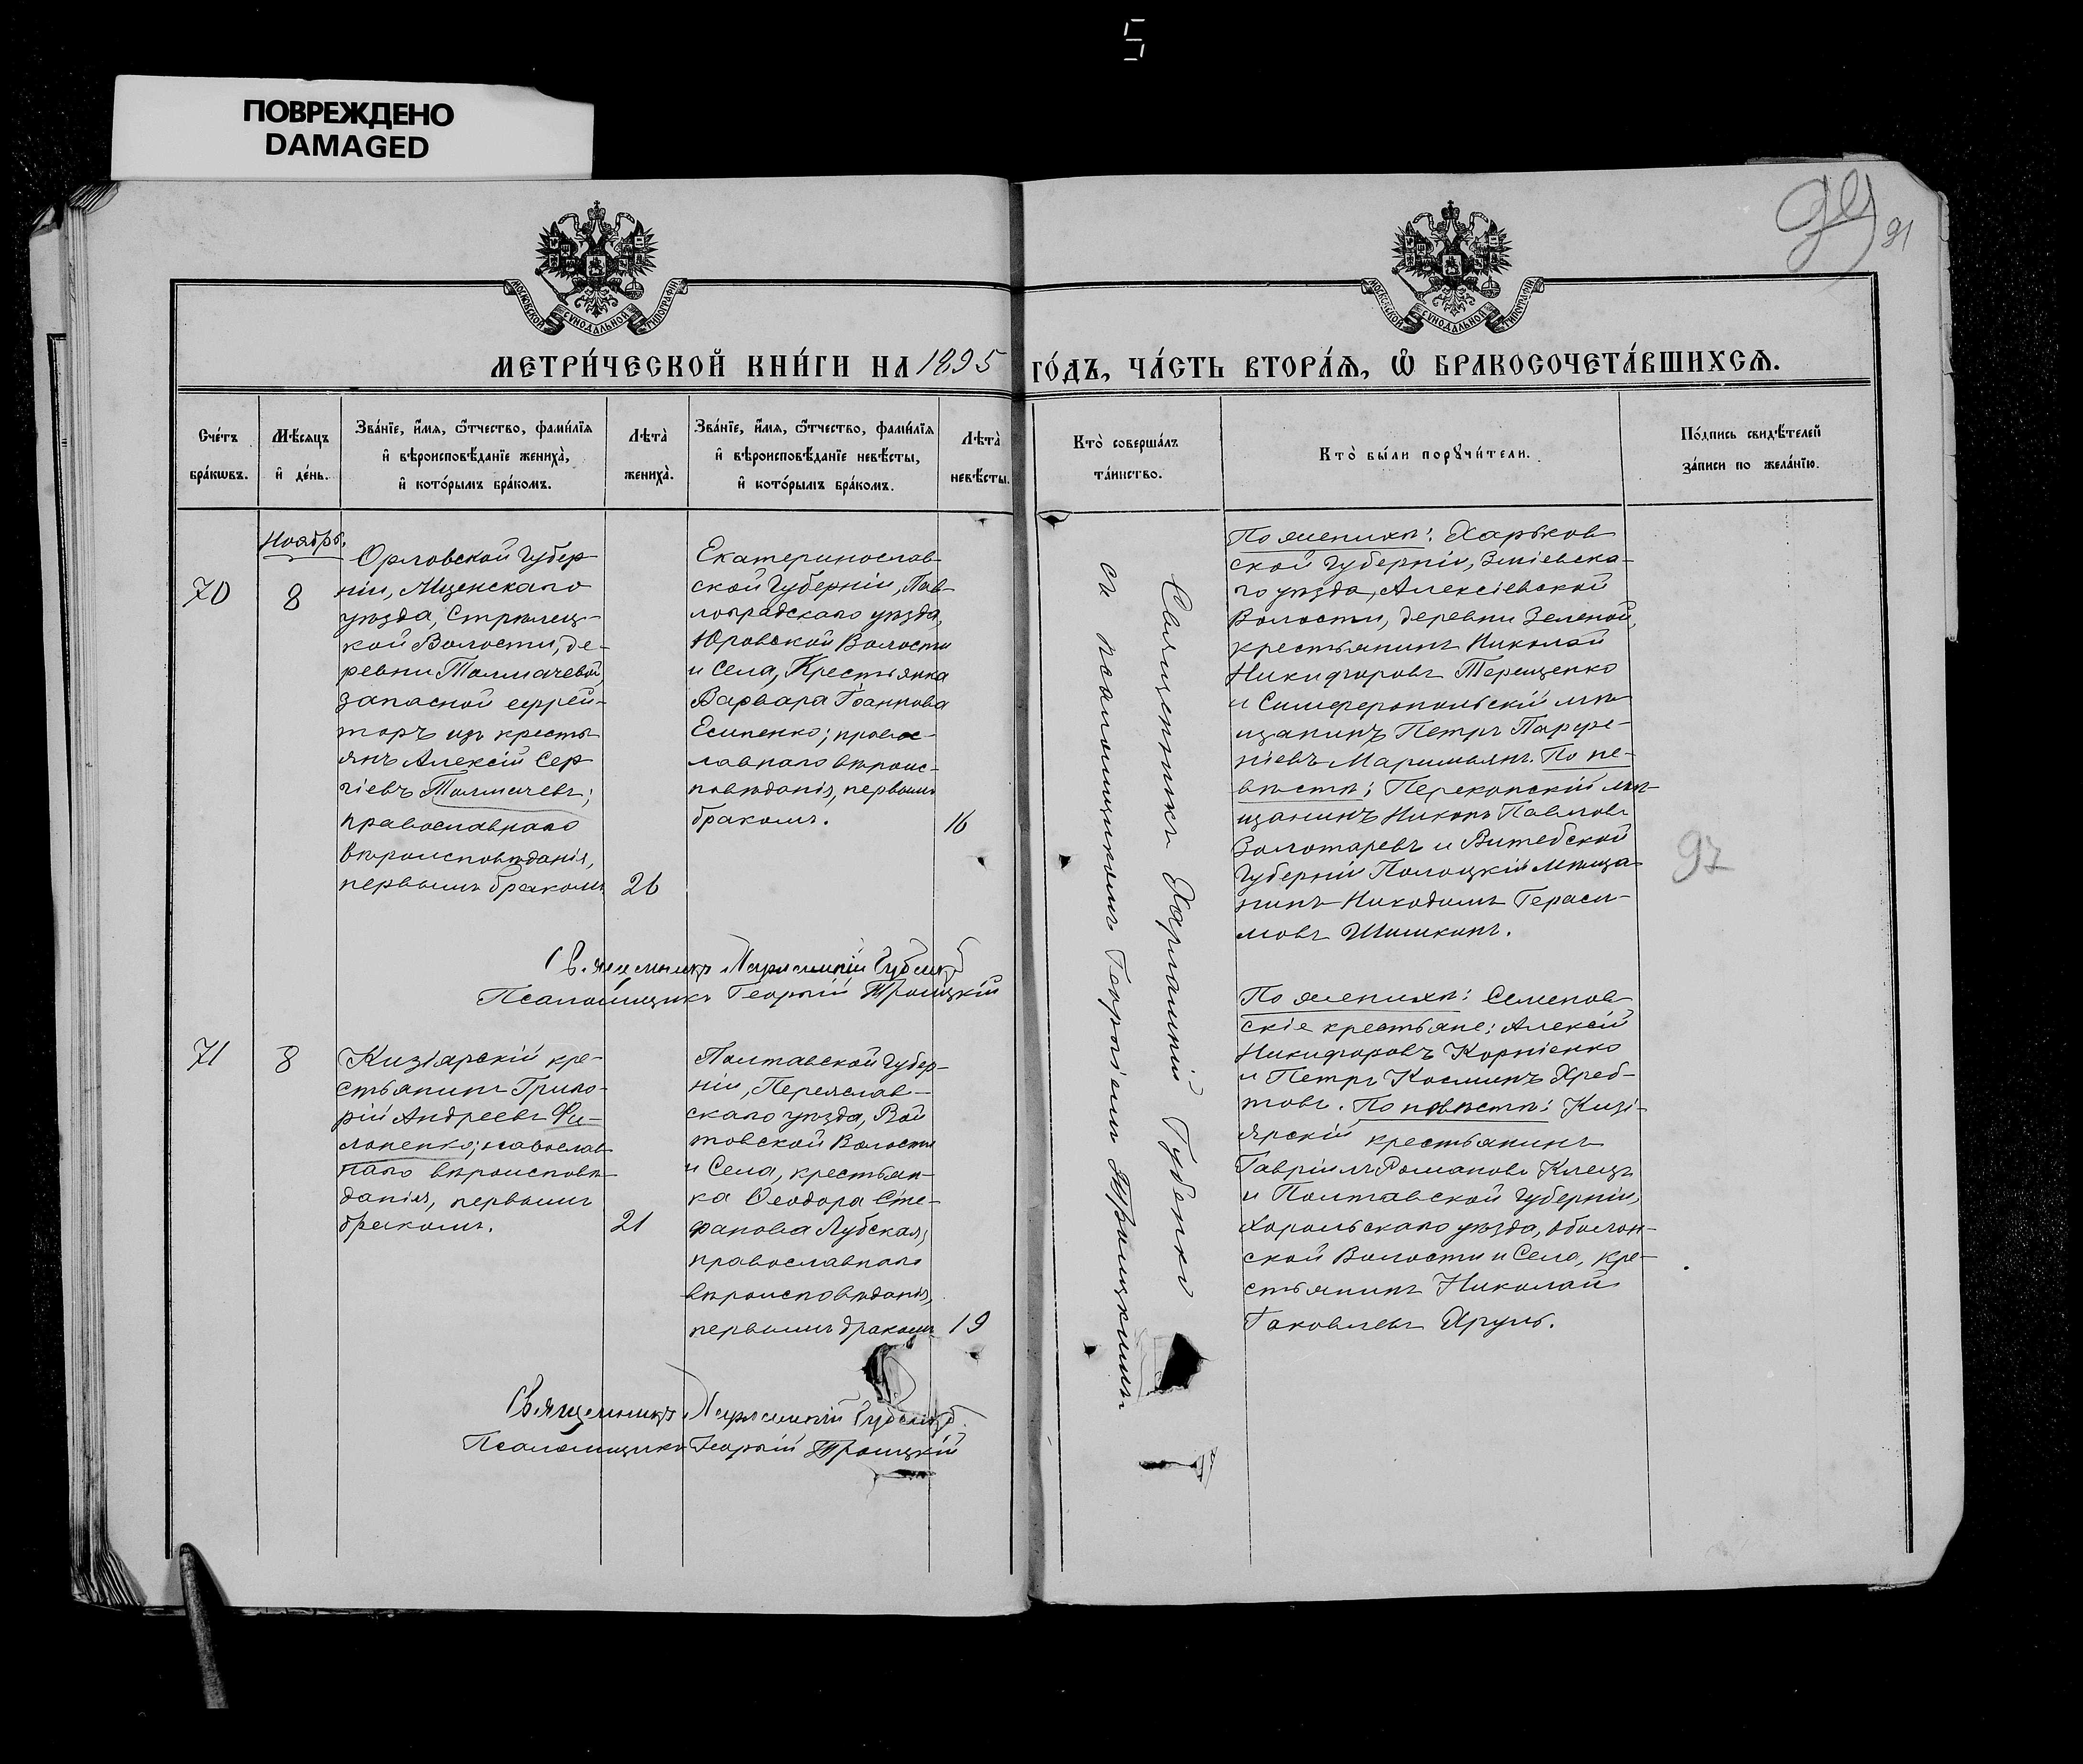 5
ПОВРЕЖДЕНО
DAMAGED
91
МОСКОВСКОЙ СѴНОДАЛЬНОЙ ТИПОГРАФІИ
МОСКОВСКОЙ СѴНОДАЛЬНОЙ ТИПОГРАФІИ
МЕТРИ́ЧЕСКОЙ КНИ́ГИ НА 1895 ГО́ДЪ, ЧА́СТЬ ВТОРА́Ѧ, Ѽ БРАКОСОЧЕТА́ВШИХСѦ.
Сче́тъ
бра́кѡвъ.
Мѣ́сѧцъ
и҆ де́нь.
Зва́нїе, и҆́мѧ, ѻ҆́тчество, фами́лїѧ
и҆ вѣроисповѣ́данїе жениха̀,
и҆ кото́рымъ бра́комъ.
Лѣта̀
жениха̀.
Зва́нїе, и҆́мѧ, ѻ҆́тчество, фами́лїѧ
и҆ вѣроисповѣ́данїе невѣ́сты,
и҆ кото́рымъ бра́комъ.
Лѣта̀
невѣ́сты.
Кто̀ соверша́лъ
та́инство.
Кто̀ бы́ли порꙋчи́тели.
По́дпись свидѣ́телей
за́писи по жела́нїю.
Ноябрь.
70
8
Орловской Губер-
ніи, Мценскаго
уѣзда, Стрѣлец-
кой Волости, де-
ревни Толмачевой,
запасной ефрей-
торъ изъ кресть
янъ Алексій Сер
гіевъ Толмачевъ;
православнаго
вѣроисповѣданія,
первымъ бракомъ
26
Екатеринослав
ской Губерніи, Пав-
лоградскаго уѣзда,
Юровской Волости
и Села, Крестьянка
Варвара Іоаннова
Есипенко; правос-
лавнаго вѣроис-
повѣданія, первымъ
бракомъ.
16
Священникъ Харлампій Губенко
съ псаломщикомъ Георгіемъ Троицкимъ
По женихѣ: Харьков
ской Губерніи, Зміевска-
го уѣзда, Алексіевской
Волости, деревни Зеленой,
крестьянинъ Николай
Никифоровъ Терещенко
и Симферопольскій мѣ
щанинъ Петръ Парфе-
ніевъ Маримьянъ. По не-
вѣстѣ: Перекопскій мѣ-
щанинъ Никонъ Павловъ
Золотаревъ и Витебской
Губерніи Полоцкій мѣща-
нинъ Никодимъ Гераси-
мовъ Шишкинъ.
97
Священникъ Харлампій Губенко
Псаломщикъ Георгій Троицкій
71
8
Кизіярскій кре-
стьянинъ Григо-
рій Андреевъ Фи-
лоненко; православ
наго вѣроисповѣ-
данія, первымъ
бракомъ.
21
Полтавской Губер-
ніи, Переяслав-
скаго уѣзда, Вой
товской Волости
и Села, крестьян-
ка Ѳеодора Сте-
фанова Лубская,
православнаго
вѣроисповѣданія,
первымъ бракомъ
19
По женихѣ: Семенов-
скіе крестьяне: Алексій
Никифоровъ Корніенко
и Петръ Косминъ Хреб-
товъ. По невѣстѣ: Кизі-
ярскій крестьянинъ
Гавріилъ Романовъ Клецъ
и Полтавской Губерніи,
Хорольскаго уѣзда, Оболон-
ской Волости и Села, кре-
стьянинъ Николай
Іаковлевъ Ярунъ.
Священникъ Харлампій Губенко
Псаломщикъ Георгій Троицкій